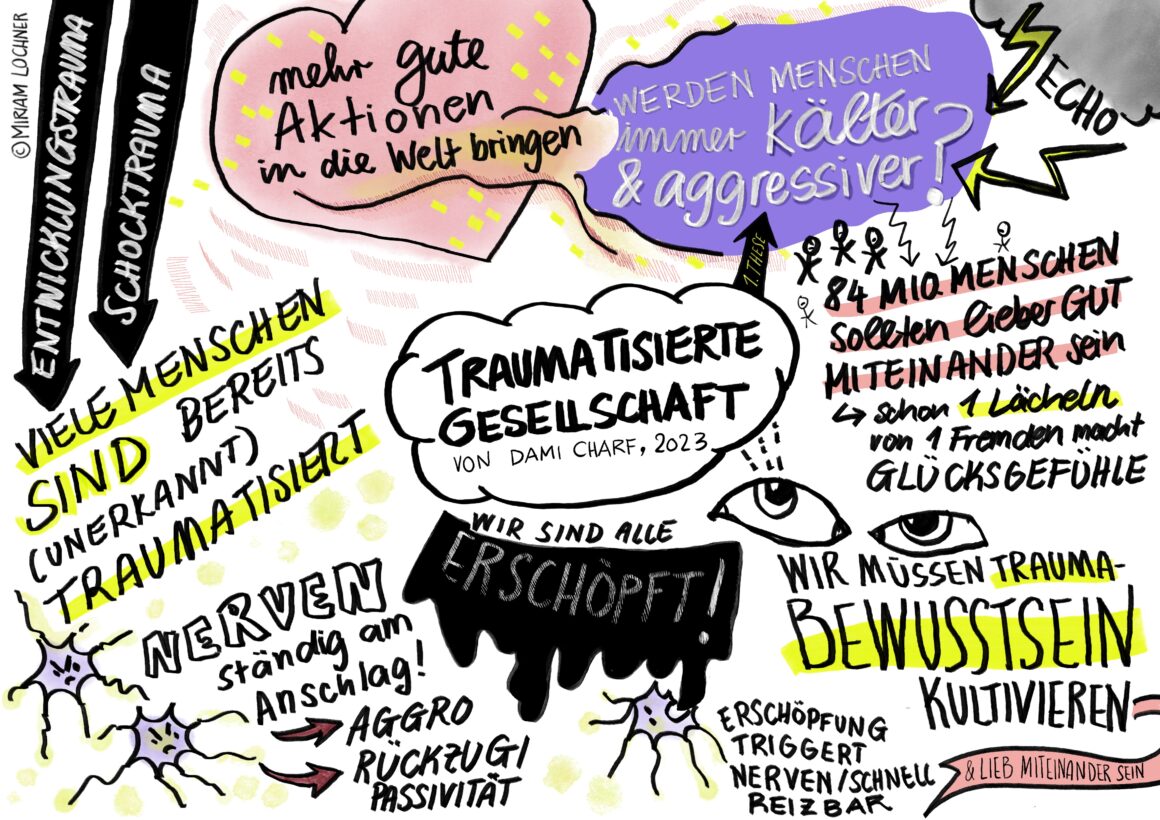 © MIRIAM LOCHNER
ENTWICKLUNGSTRAUMA
SCHOCKTRAUMA
mehr gute
Aktionen
in die Welt bringen
WERDEN MENSCHEN
immer kälter
& aggressiver?
ECHO
1. THESE
84 MIO. MENSCHEN
sollten lieber GUT
MITEINANDER sein
↳ schon 1 Lächeln
von 1 Fremden macht
GLÜCKSGEFÜHLE
TRAUMATISIERTE
GESELLSCHAFT
VON DAMI CHARF, 2023
VIELE MENSCHEN
SIND BEREITS
(UNERKANNT)
TRAUMATISIERT
WIR SIND ALLE
ERSCHÖPFT!
NERVEN
ständig am
Anschlag!
AGGRO
RÜCKZUG|
PASSIVITÄT
ERSCHÖPFUNG
TRIGGERT
NERVEN/SCHNELL
REIZBAR
WIR MÜSSEN TRAUMA-
BEWUSSTSEIN
KULTIVIEREN
& LIEB MITEINANDER SEIN